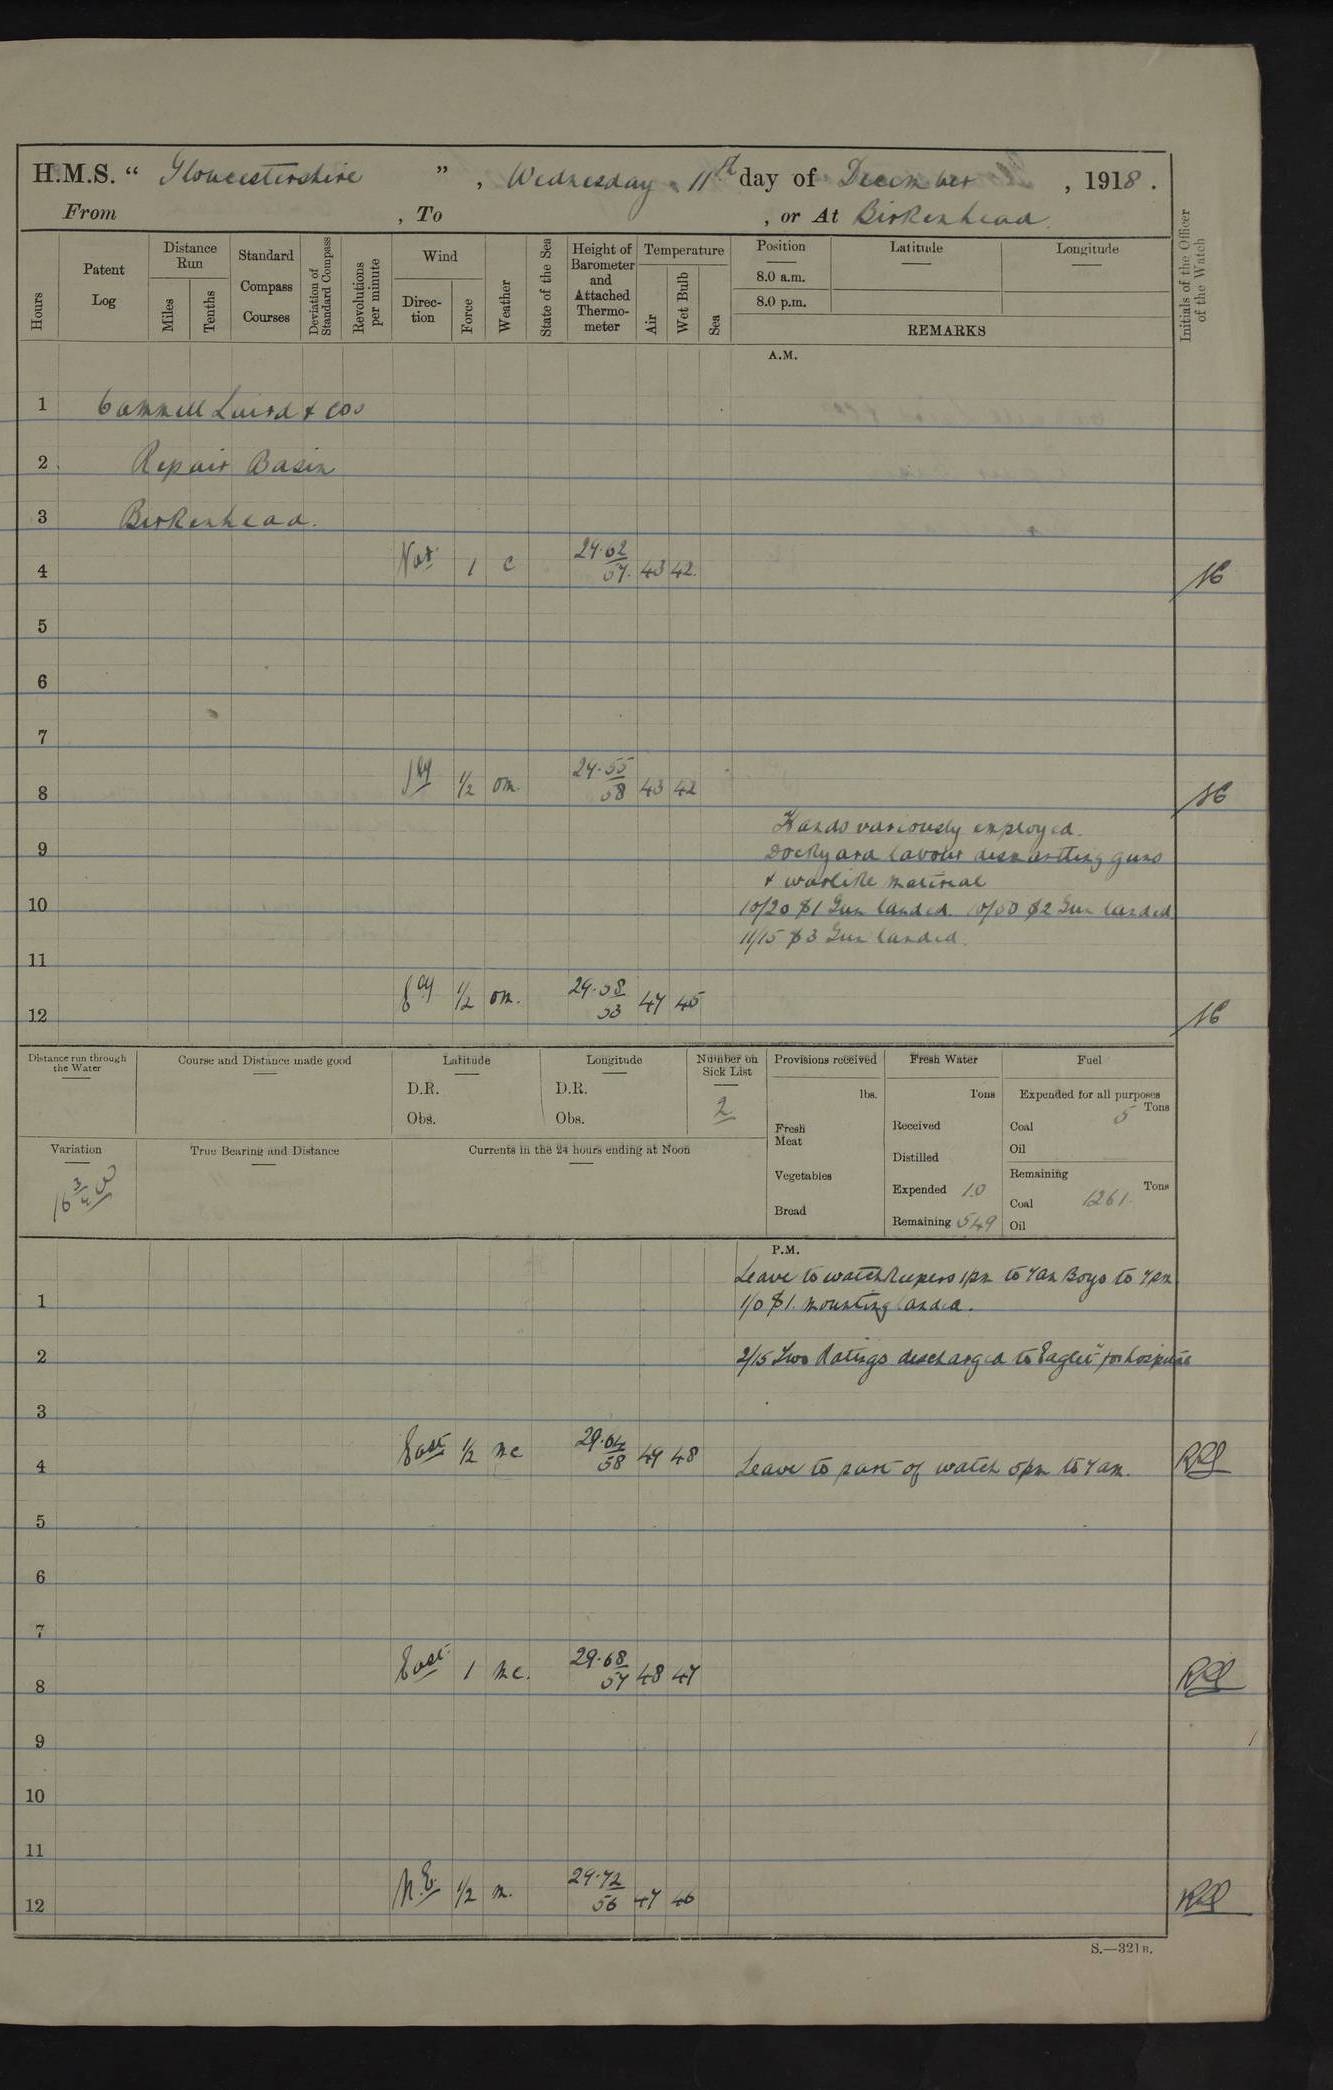 H.M.S. “ Gloucestershire ” , Wednesday 11th day of December , 1918 .
From , To , or At Birkenhead.
Hours
Patent Log
Distance Run
Miles
Tenths
Standard Compass Courses
Deviation of Standard Compass
Revolutions per minute
Wind
Direc-tion
Force
Weather
State of the Sea
Height of Barometer and Attached Thermo-meter
Temperature
Air
Wet Bulb
Sea
Position
8.0 a.m.
8.0 p.m.
Latitude
Longitude
REMARKS
Initials of the Officer of the Watch
A.M.
1 Cammell Laird & Cos
2 Repair Basin
3 Birkenhead.
4 1 c 29.62 57. 43 42.
5
6
7
8 1/2 om. 29.55 58 43 42
Hands variously employed.
9 Dockyard labour dismantling guns
& warlike material
10 10/20 $1 Gun landed. 10/50 $2 Gun landed
11/15 $3 Gun landed.
11
12 1/2 om. 29.58 53 47 45
Distance run through the Water
Course and Distance made good
Latitude
D.R.
Obs.
Longitude
D.R.
Obs.
Number on Sick List
2
Provisions received
lbs.
Fresh Meat
Vegetables
Bread
Fresh Water
Tons
Received
Distilled
Expended 10
Remaining 549
Fuel
Expended for all purposes
Tons
Coal 5
Oil
Remaining
Tons
Coal 1261.
Oil
Variation
16 3/4 W
True Bearing and Distance
Currents in the 24 hours ending at Noon
P.M.
Leave to watchkeepers 1pm to 7am Boys to 7pm
1 1/0 $1. mounting landed.
2 2/15 Two Ratings discharged to "Eaglet" for hospital
3
4 East 1/2 mc 29.64 58 49 48 Leave to part of watch 5pm to 7am.
5
6
7
8 East 1 mc. 29.68 57 48 47
9
10
11
12 N.E. 1/2 m. 29.72 56 47 46
S.—321B.